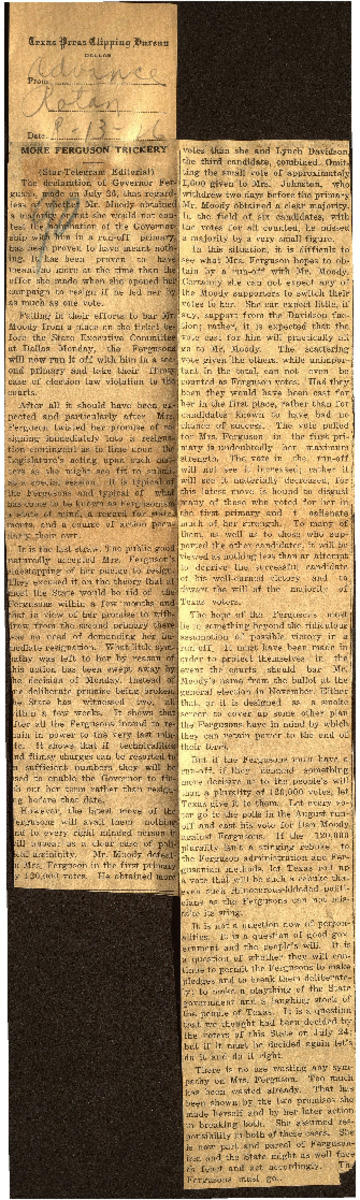 Texas Press Clipping Bureau
DALLAS
From Advance
Rotan
Date
MORE FERGUSON TRICKERY
(Star-Telegram Editorial)
The declaration of Governor Fer-
guson, made on July 26, that regard-
less of whether Mr. Moody obtained
a that she would not con-
test the nomination of the Governor-
ship with him in a run-off primary,
has been proven to have meant noth-
ing. It has been proven to have
meant no more at the time than the
offer she made when she opened her
campaign to resign if he led her by
as much as one vote.
Failing in their efforts to bar Mr.
Moody from a place on the ticket be-
fore the State Executive Committee
at Dallas Monday, the Fergusons
will now run it off with him in a sec-
ond primary and take their flimsy
case of election law violation to the
courts.
After all it should have been ex-
pected and particularly after Mrs.
Ferguson twisted her promise of re-
signing immediately into a resigna-
tion contingent as to time upon the
Legislature's acting upon such mat-
ters as she might see fit to submit
to a special session. It is typical of
the Fergusons and typical of what
has come to be known as Fergusonism,
a state of mind, a record for
ments, and a course of action pecu-
liarly their own.
It is the last straw. The public good
naturedly accepted Mrs. Ferguson's
postponing of her promise to resign.
They excused it on the theory that at
most the State would be rid of the
Fergusons within a few months and
that in view of her promise to with-
draw from the second primary there
was no need of demanding her im-
mediate resignation. What little sym-
pathy was left to her by reason of
this action has been swept away by
the decision of Monday. Instead of
one deliberate promise being broken,
the State has witnessed two, all
within a few weeks. It shows that
after all the Fergusons intend to re-
main in power to the very last min-
ute. It shows that if technicalities
and flimsy charges can be resorted to
in sufficient numbers they will be
used to enable the Governor to fin-
ish out her term rather than resign-
ing before that date.
However, the latest move of the
Fergusons will avail them nothing
and to every right minded person it
will appear as a clear case of poli-
tical asininity. Mr. Moody defeat-
ed Mrs. Ferguson in the first primary
by 120,000 votes. He obtained more
votes than she and Lynch Davidson,
the third candidate, combined. Omit-
ting the small vote of approximately
1,000 given to Mrs. Johnston, who
withdrew two days before the primary,
Mr. Moody obtained a clear majority.
In the field of six candidates, with
the votes for all counted, he missed
a majority by a very small figure.
In this situation, it is difficult to
see what Mrs. Ferguson hopes to ob-
tain by a run-off with Mr. Moody.
Certainly she can not expect any of
the Moody supporters to switch their
votes to her. She can expect little, if
any, support from the Davidson fac-
tion; rather, it is expected that the
vote cast for him will practically all
go to Mr. Moody. The scattering
vote given the others, while unimpor-
tant in the total, can not even be
counted as Ferguson votes. Had they
been they would have been cast for
her in the first place, rather than for
candidates known to have had no
chance of success. The vote polled
for Mrs. Ferguson in the first pri-
mary is undoubtedly her maximum
strength. The vote in the run-off
will not see it increased; rather it
will see it materially decreased, for
this latest move is bound to disgust
many of those who voted for her in
the first primary and alienate
much of her strength. To many of
them, as well as to those who sup-
ported the other candidates, it will be
viewed as nothing less than an attempt
to deprive the successful candidate
of his well-earned victory and to
thwart the will of the majority of
Texas voters.
The hope of the Fergusons must
be in something beyond the ridiculous
assumption of possible victory in a
run off. It must have been made in
order to protect themselves in the
event the courts should bar Mr.
Moody's name from the ballot at the
general election in November. Either
that, or it is designed as a smoke
screen to cover up some other plan
the Fergusons have in mind by which
they can retain power to the end of
their term.
But if the Fergusons must have a
run-off, if they demand something
more decisive as to the people's will
than a plurality of 120,000 votes, let
Texas give it to them. Let every vo-
ter go to the polls in the August run-
off and cast his vote for Dan Moody,
against Fergusons. If the 120,000
plurality isn't a stinging rebuke to
the Ferguson administration and Fer-
gusonian methods, let Texas roll up
a vote that will be such a rebuke that
even such rhinoceros-hided politi-
cians as the Fergusons can not mis-
take its sting.
It is not a question now of person-
alities. It is a question of good gov-
ernment and the people's will. It is
a question of whether they will con-
tinue to permit the Fergusons to make
pledges and to break them deliberate-
ly; to make a plaything of the State
government and a laughing stock of
the people of Texas. It is a question
that we thought had been decided by
the voters of this State on July 24,
but if it must be decided again let's
do it and do it right.
There is no use wasting any sym-
pathy on Mrs. Ferguson. Too much
has been wasted already. That has
been shown by the two promises she
made herself and by her later action
in breaking both. She assumed res-
ponsibility in both of these cases. She
is now part and parcel of Ferguson-
ism and the State might as well face
its fact and act accordingly. The
Fergusons must go.